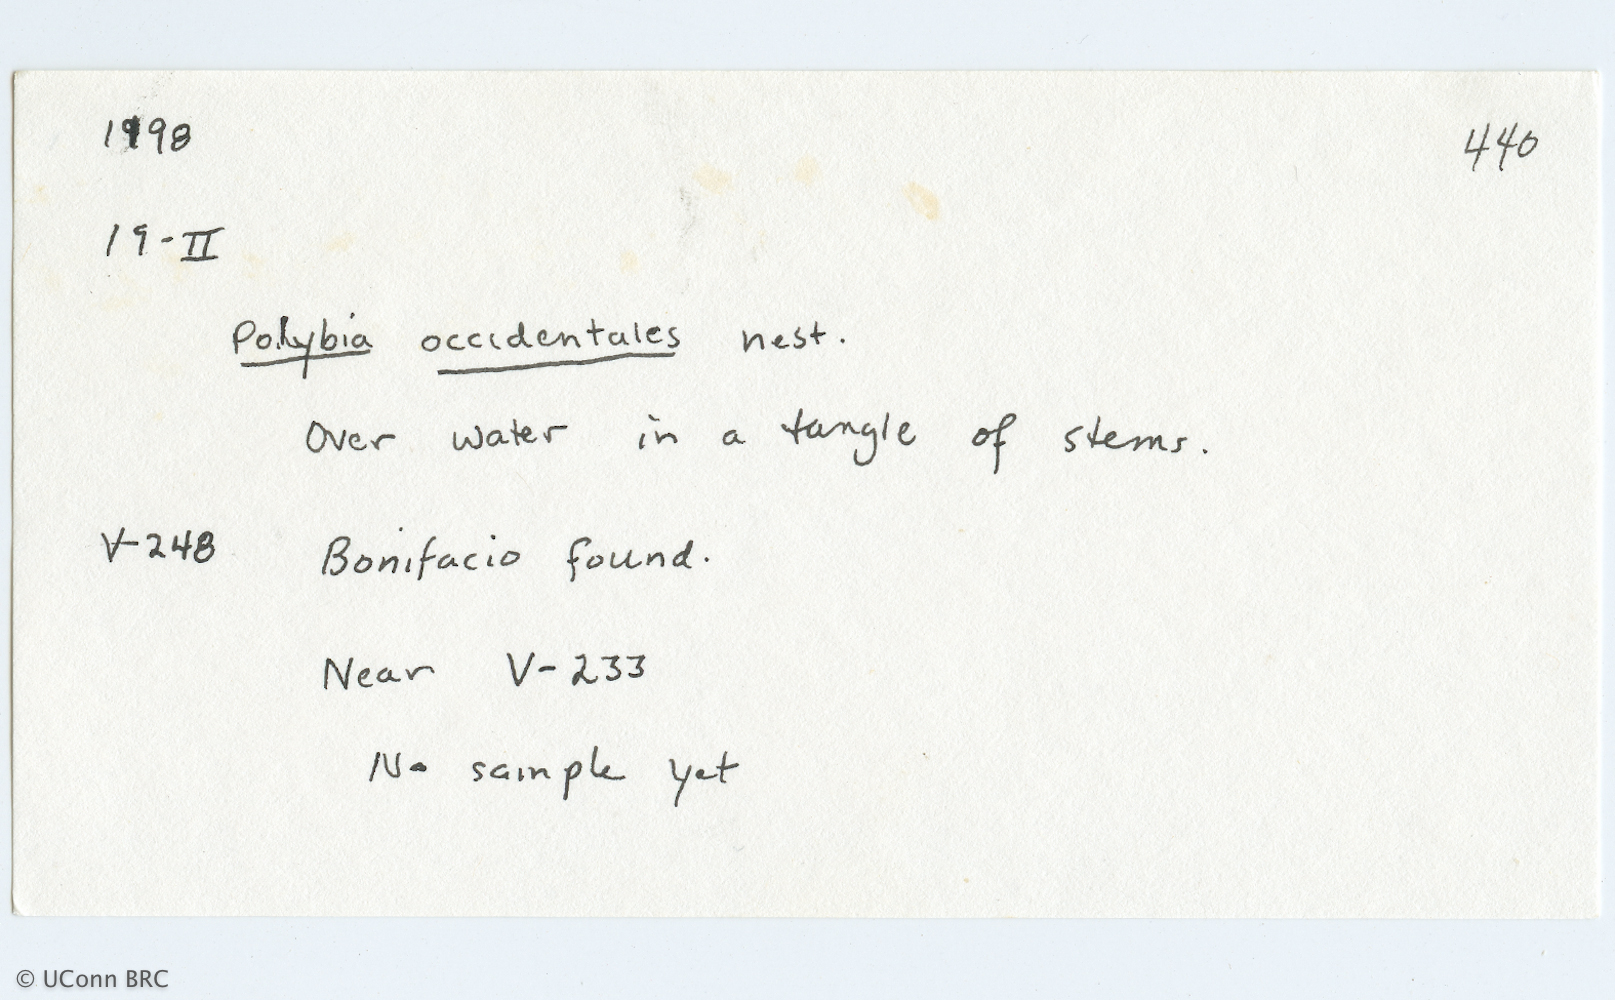 1998
440
19-II
Polybia occidentales nest.
Over water in a tangle of stems.
V-248 Bonifacio found.
Near V-233
No sample yet
© UConn BRC